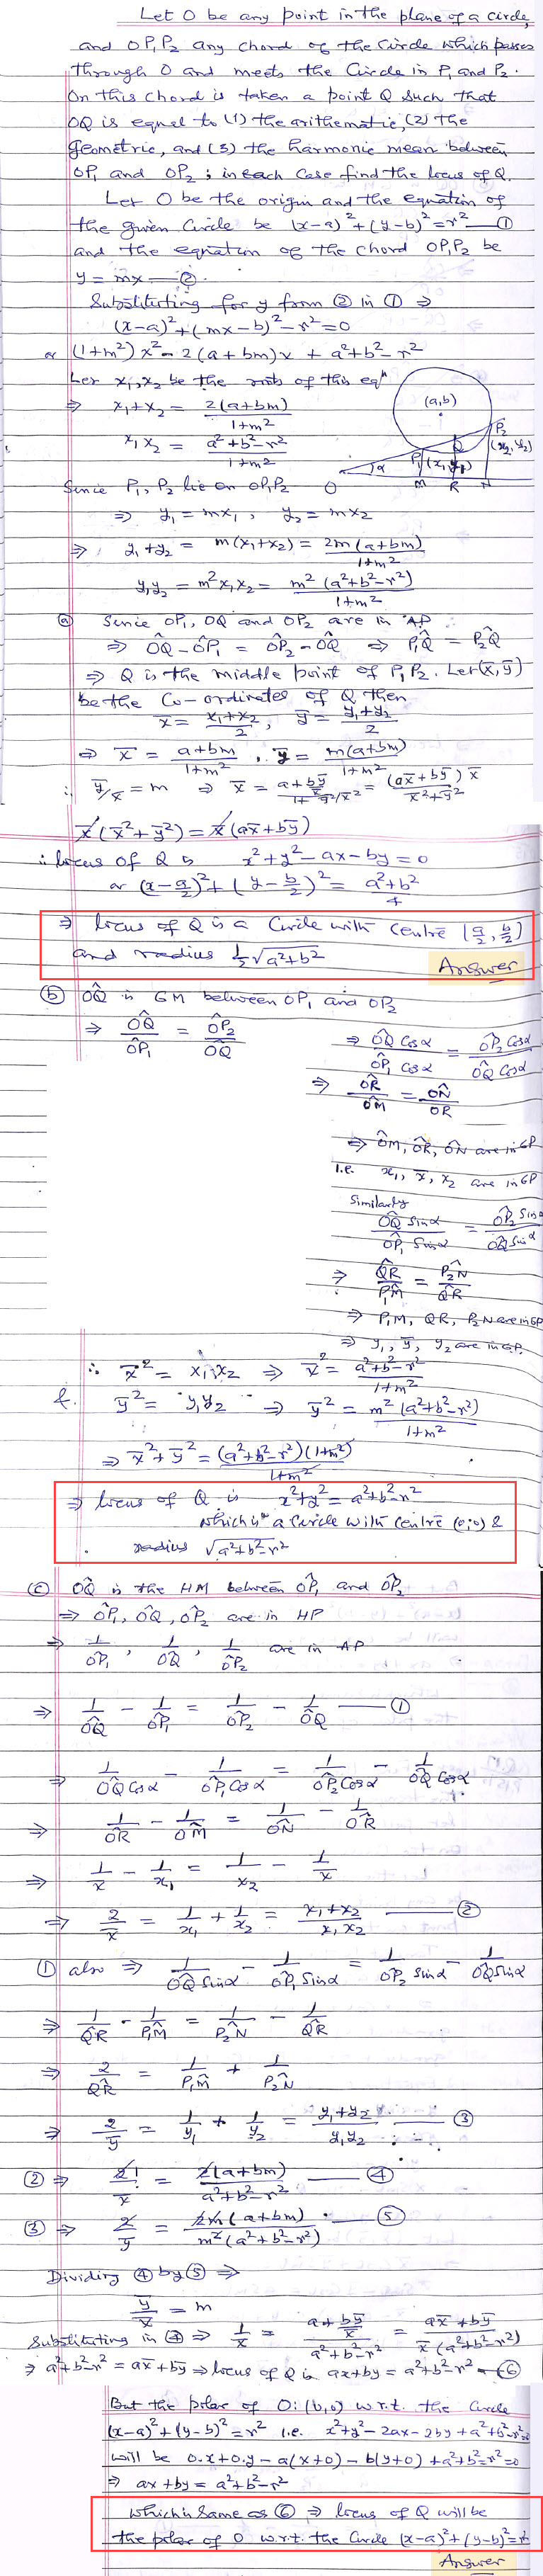 Let O be any point in the plane of a circle,
and OP₁P₂ any chord of the circle which passes
through O and meets the Circle in P₁ and P₂.
On this chord is taken a point Q such that
OQ is equal to (1) the arithematic, (2) the
geometric, and (3) the harmonic mean between
OP₁ and OP₂; in each case find the locus of Q.
Let O be the origin and the equation of
the given Circle be (x-a)²+(y-b)²=r² — ①
and the equation of the chord OP₁P₂ be
y=mx — ②
Substituting for y from ② in ① ⇒
(x-a)²+(mx-b)²-r²=0
or (1+m²)x²-2(a+bm)x + a²+b²-r²
Let x₁,x₂ be the roots of this eqⁿ
⇒ x₁+x₂ = 2(a+bm)/(1+m²)
x₁x₂ = (a²+b²-r²)/(1+m²)
(a,b)
P₂ (x₂,y₂)
Q
P₁ (x₁,y₁)
α
O M R N
Since P₁, P₂ lie on OP₁P₂
⇒ y₁=mx₁, y₂=mx₂
⇒ y₁+y₂ = m(x₁+x₂) = 2m(a+bm)/(1+m²)
y₁y₂ = m²x₁x₂ = m²(a²+b²-r²)/(1+m²)
ⓐ Since OP₁, OQ and OP₂ are in AP
⇒ OQ - OP₁ = OP₂ - OQ ⇒ P₁Q = P₂Q
⇒ Q is the middle point of P₁P₂. Let (x̄,ȳ)
be the Co-ordinates of Q then
x̄ = (x₁+x₂)/2, ȳ = (y₁+y₂)/2
⇒ x̄ = (a+bm)/(1+m²), ȳ = m(a+bm)/(1+m²)
∴ ȳ/x̄ = m ⇒ x̄ = (a+bȳ/x̄)/(1+ȳ²/x̄²) = (ax̄+bȳ)x̄/(x̄²+ȳ²)
x̄(x̄²+ȳ²) = x̄(ax̄+bȳ)
∴ locus of Q is x²+y²-ax-by=0
or (x-a/2)²+(y-b/2)² = (a²+b²)/4
⇒ locus of Q is a Circle with centre (a/2, b/2)
and radius ½√(a²+b²)
Answer
ⓑ OQ is GM between OP₁ and OP₂
⇒ OQ/OP₁ = OP₂/OQ
⇒ OQ Cosα/OP₁ Cosα = OP₂ Cosα/OQ Cosα
⇒ OR/OM = ON/OR
⇒ OM, OR, ON are in GP
i.e. x₁, x̄, x₂ are in GP
Similarly
OQ Sinα/OP₁ Sinα = OP₂ Sinα/OQ Sinα
⇒ QR/P₁M = P₂N/QR
⇒ P₁M, QR, P₂N are in GP
⇒ y₁, ȳ, y₂ are in GP.
∴ x̄² = x₁x₂ ⇒ x̄² = (a²+b²-r²)/(1+m²)
&. ȳ² = y₁y₂ ⇒ ȳ² = m²(a²+b²-r²)/(1+m²)
⇒ x̄²+ȳ² = (a²+b²-r²)(1+m²)/(1+m²)
⇒ locus of Q is x²+y²=a²+b²-r²
which is a Circle with Centre (0,0) &
radius √(a²+b²-r²)
ⓒ OQ is the HM between OP₁ and OP₂
⇒ OP₁, OQ, OP₂ are in HP
⇒ 1/OP₁, 1/OQ, 1/OP₂ are in AP
⇒ 1/OQ - 1/OP₁ = 1/OP₂ - 1/OQ — ①
⇒ 1/OQ Cosα - 1/OP₁ Cosα = 1/OP₂ Cosα - 1/OQ Cosα
⇒ 1/OR - 1/OM = 1/ON - 1/OR
⇒ 1/x̄ - 1/x₁ = 1/x₂ - 1/x̄
⇒ 2/x̄ = 1/x₁ + 1/x₂ = (x₁+x₂)/x₁x₂ — ②
① also ⇒ 1/OQ Sinα - 1/OP₁ Sinα = 1/OP₂ Sinα - 1/OQ Sinα
⇒ 1/QR - 1/P₁M = 1/P₂N - 1/QR
⇒ 2/QR = 1/P₁M + 1/P₂N
⇒ 2/ȳ = 1/y₁ + 1/y₂ = (y₁+y₂)/y₁y₂ — ③
② ⇒ 2/x̄ = 2(a+bm)/(a²+b²-r²) — ④
③ ⇒ 2/ȳ = 2m(a+bm)/m²(a²+b²-r²) — ⑤
Dividing ④ by ⑤ ⇒
ȳ/x̄ = m
Substituting in ④ ⇒ 1/x̄ = (a+bȳ/x̄)/(a²+b²-r²) = (ax̄+bȳ)/x̄(a²+b²-r²)
⇒ a²+b²-r² = ax̄+bȳ ⇒ locus of Q is ax+by = a²+b²-r² — ⑥
But the polar of O:(0,0) w.r.t. the Circle
(x-a)²+(y-b)²=r² i.e. x²+y²-2ax-2by+a²+b²-r²=0
will be 0.x+0.y-a(x+0)-b(y+0)+a²+b²-r²=0
⇒ ax+by=a²+b²-r²
which is same as ⑥ ⇒ locus of Q will be
the polar of O w.r.t. the Circle (x-a)²+(y-b)²=r²
Answer